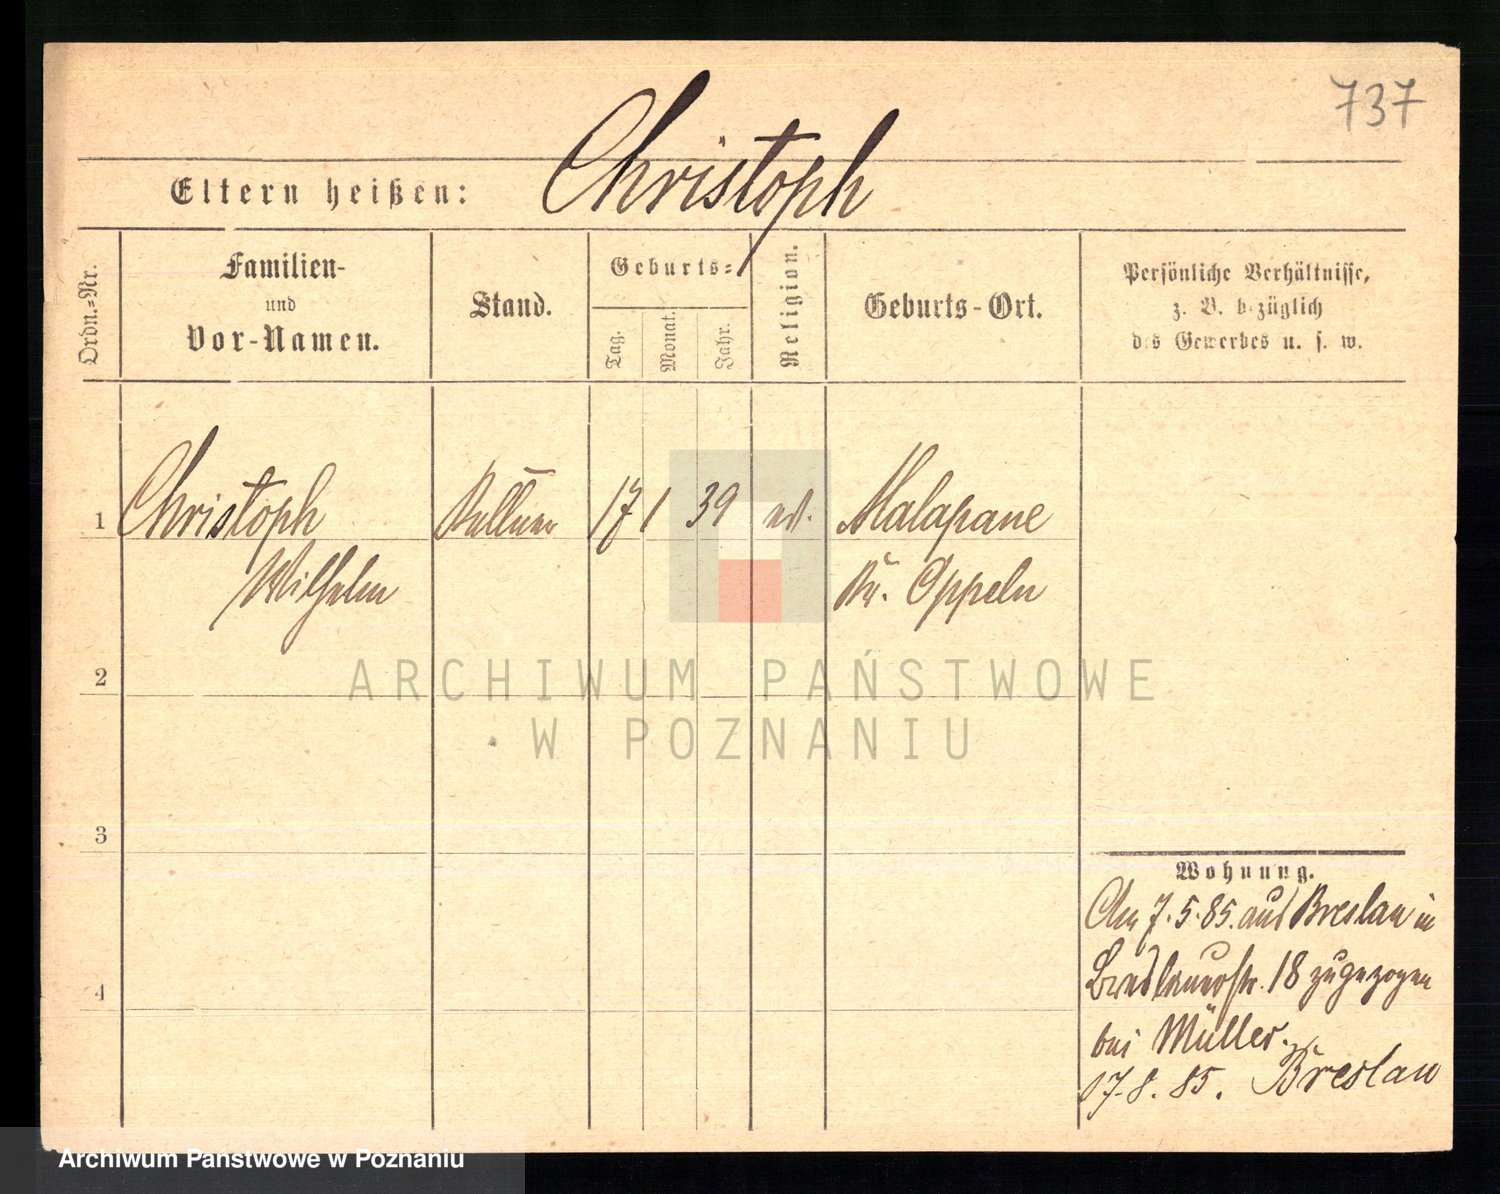 737
Christoph
Eltern heißen:
Ordn.-Nr.
Familien-
und
Vor-Namen.
Stand.
Geburts-
Tag.
Monat.
Jahr.
Religion.
Geburts-Ort.
Persönliche Verhältnisse,
z. B. bezüglich
des Gewerbes u. s. w.
1 Christoph Kellner 17 1 39 ev. Malapane
Wilhelm Kr. Oppeln
2
3
4
Wohnung.
Am 7.5.85. aus Breslau in
Breslauerstr. 18 zugezogen
bei Müller.
17.8.85. Breslau
ARCHIWUM PAŃSTWOWE
W POZNANIU
Archiwum Państwowe w Poznaniu